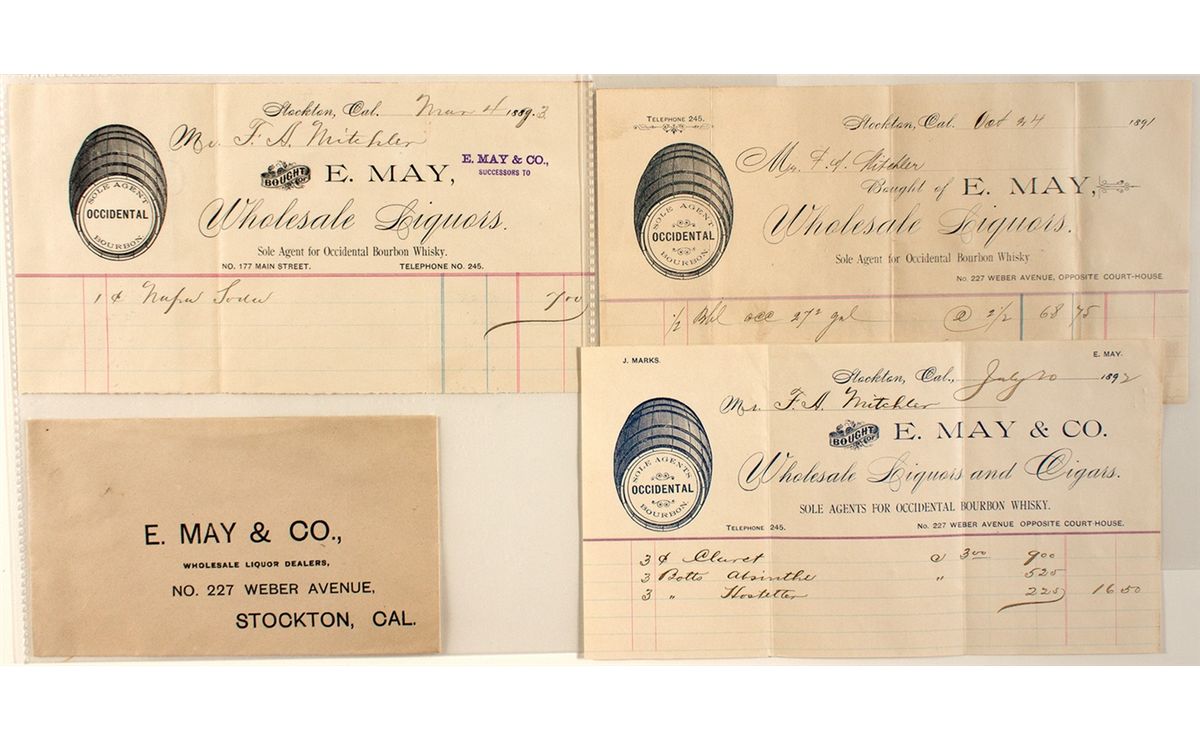 Stockton, Cal. Mar 4 1889.3
Mr. F. A. Mitchler
BOUGHT OF E. MAY,
E. MAY & CO.,
SUCCESSORS TO
SOLE AGENT
OCCIDENTAL
BOURBON.
Wholesale Liquors.
Sole Agent for Occidental Bourbon Whisky.
NO. 177 MAIN STREET. TELEPHONE NO. 245.
1 ¢ Napa Soda 7 00
TELEPHONE 245.
Stockton, Cal. Oct 24 1891
Mr. F. A. Mitchler
Bought of E. MAY,
SOLE AGENT
OCCIDENTAL
BOURBON.
Wholesale Liquors.
Sole Agent for Occidental Bourbon Whisky
No. 227 WEBER AVENUE, OPPOSITE COURT-HOUSE.
1/2 Bbl occ 27 2 gal @ 2 1/2 68 75
J. MARKS. E. MAY.
Stockton, Cal., July 20 1892
Mr. F. A. Mitchler
BOUGHT OF E. MAY & CO.
SOLE AGENTS
OCCIDENTAL
BOURBON.
Wholesale Liquors and Cigars.
SOLE AGENTS FOR OCCIDENTAL BOURBON WHISKY.
TELEPHONE 245. No. 227 WEBER AVENUE OPPOSITE COURT-HOUSE.
3 ¢ Claret @ 3 00 9 00
3 Botts Absinthe " 5 25
3 " Hostetter 2 25 16 50
E. MAY & CO.,
WHOLESALE LIQUOR DEALERS,
NO. 227 WEBER AVENUE,
STOCKTON, CAL.